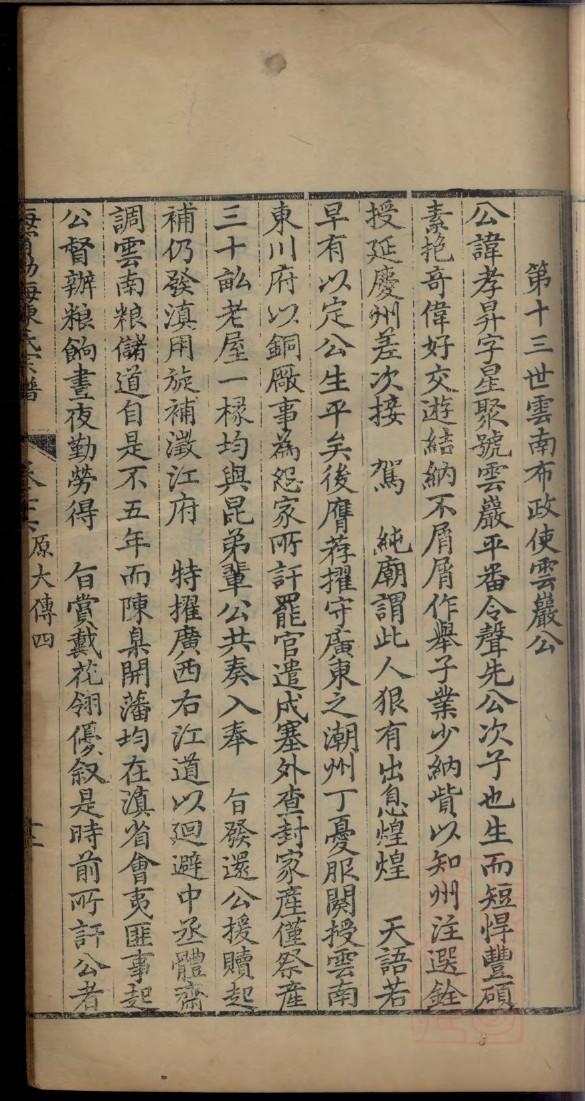 第十三世雲南布政使雲巖公
公諱孝昇字星聚號雲巖平番令聲先公次子也生而短悍豐碩
素抱奇偉好交遊結納不屑屑作舉子業少納貲以知州注選銓
授延慶州差次接　駕　純廟謂此人狠有出息煌煌　天語若
早有以定公生平矣後膺荐擢守廣東之潮州丁憂服闋授雲南
東川府以銅厰事為怨家所訐罷官遣戍塞外查封家產僅祭產
三十畝老屋一椽均與昆弟輩公共奏入奉　旨發還公援贖起
補仍發滇用旋補澂江府　特擢廣西右江道以廻避中丞體齋
調雲南粮儲道自是不五年而陳臬開藩均在滇省會夷匪事起
公督辦粮餉晝夜勤勞得　旨賞戴花翎優叙是時前所訐公者
海寧渤海陳氏宗譜
原大傳四